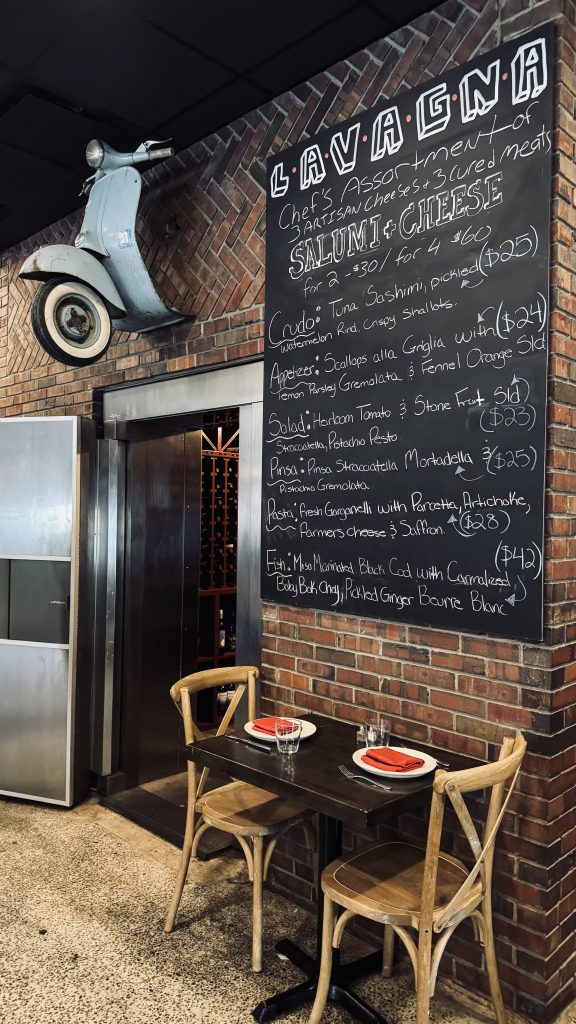 L·A·V·A·G·N·A
Chef's Assortment of
3 ARTISAN cheeses + 3 cured meats
SALUMI + CHEESE
for 2 - $30 / for 4 $60
Crudo: Tuna Sashimi, pickled ($25)
Watermelon Rind, Crispy Shallots.
Appetizer: Scallops alla Griglia with ($24)
lemon Parsley Gremolata & Fennel Orange Sld
Salad: Heirloom Tomato & Stone Fruit Sld
Stracciatella, Pistachio Pesto. ($23)
Pinsa: Pinsa Stracciatella Mortadella & ($25)
Pistachio Gremolata.
Pasta: Fresh Garganelli with Pancetta, Artichoke,
Farmers cheese & Saffron. ($28)
($42)
Fish: Miso Marinated Black Cod with Carmalized
Baby Bok Choy, Pickled Ginger Beurre Blanc